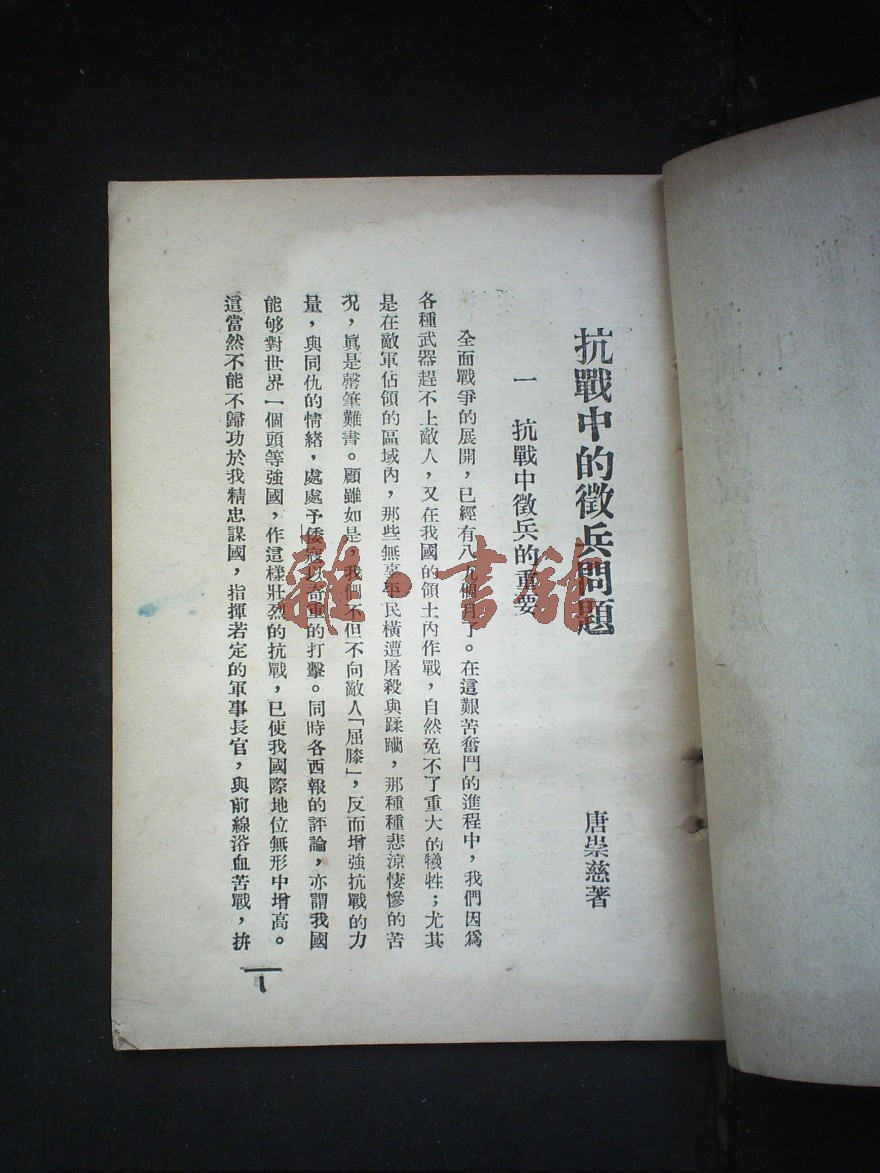 抗戰中的徵兵問題
唐崇慈著
一　抗戰中徵兵的重要
全面戰爭的展開，已經有八九個月了。在這艱苦奮鬥的進程中，我們因爲
各種武器趕不上敵人，又在我國的領土內作戰，自然免不了重大的犧牲；尤其
是在敵軍佔領的區域內，那些無辜平民橫遭屠殺與蹂躪，那種種悲涼悽慘的苦
况，眞是罄筆難書。顧雖如是，我們不但不向敵人「屈膝」，反而增強抗戰的力
量，與同仇的情緒，處處予倭寇以奇重的打擊。同時各西報的評論，亦謂我國
能够對世界一個頭等強國，作這樣壯烈的抗戰，已使我國際地位無形中增高。
這當然不能不歸功於我精忠謀國，指揮若定的軍事長官，與前線浴血苦戰，拚
1
雜·書館